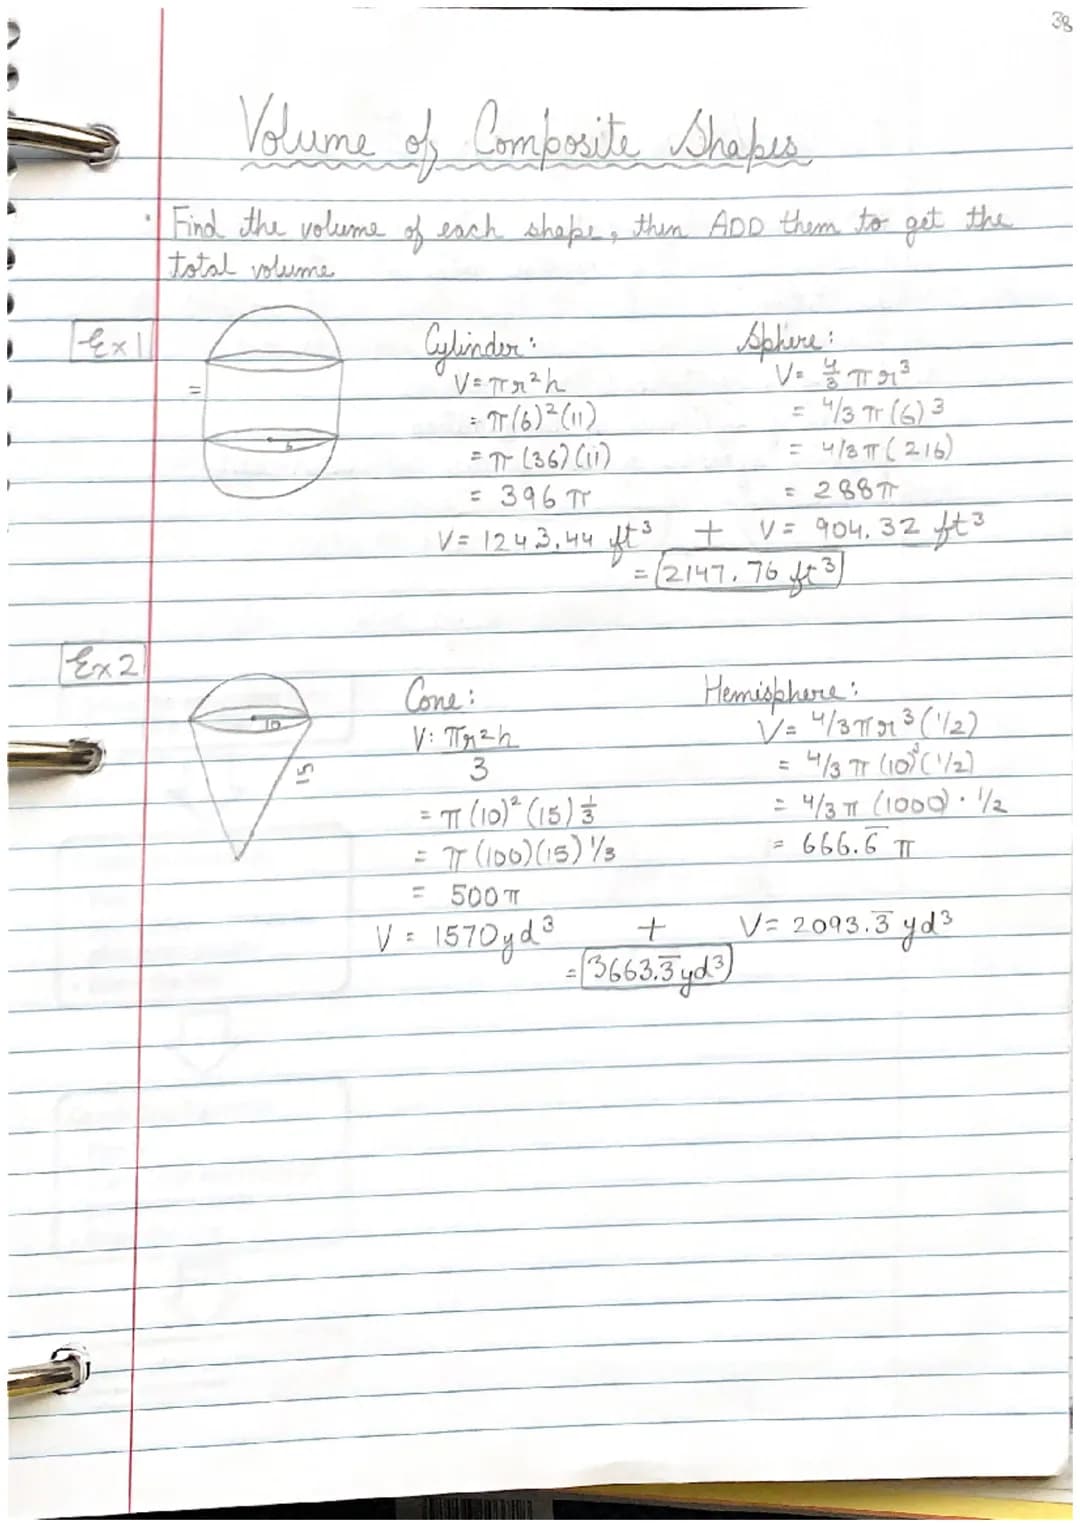 38
Volume of Composite Shapes
· Find the volume of each shape, then ADD them to get the
total volume
Ex 1
11
6
Cylinder:
V=πr²h
=π(6)²(11)
=π(36)(11)
= 396π
V= 1243.44 ft³ + V= 904.32 ft³
Sphere:
V= 4/3 πr³
= 4/3 π(6)3
= 4/3π(216)
= 288π
= 2147.76 ft³
Ex 2
10
15
Cone:
V: πr²h
3
= π(10)²(15) 1/3
= π(100)(15) 1/3
= 500π
Hemisphere:
V= 4/3πr³(1/2)
= 4/3 π (10)³(1/2)
= 4/3 π (1000) · 1/2
= 666.6̅ π
V = 1570yd³ + V= 2093.3̅ yd³
= 3663.3̅yd³